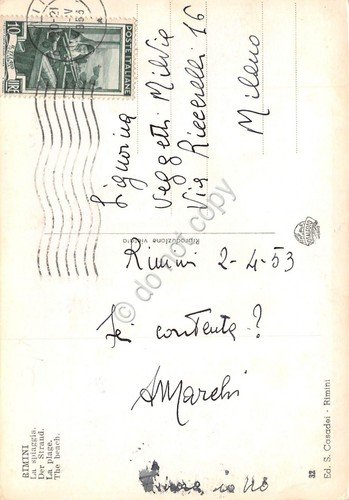 POSTE ITALIANE
LIRE 10
Signorina
Veggetti Milvia
Via Riccarelli 16
Milano
Riproduzione vietata
Rimini 2-4-53
Sei contenta?
AMarchi
RIMINI
La spiaggia.
Der Strand.
La plage.
The beach.
32
Ed. S. Casadei - Rimini
do not copy